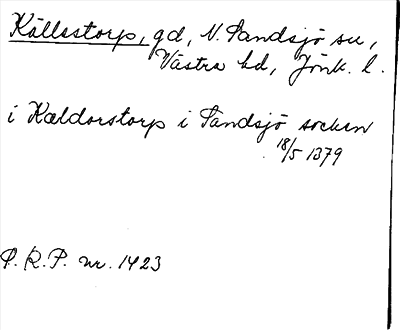 Källstorp, gd, N. Sandsjö sn,
Västra hd, Jönk. l.
i Kældorstorp i Sandsjö socken
18/5 1379
P.R.P. nr. 1423